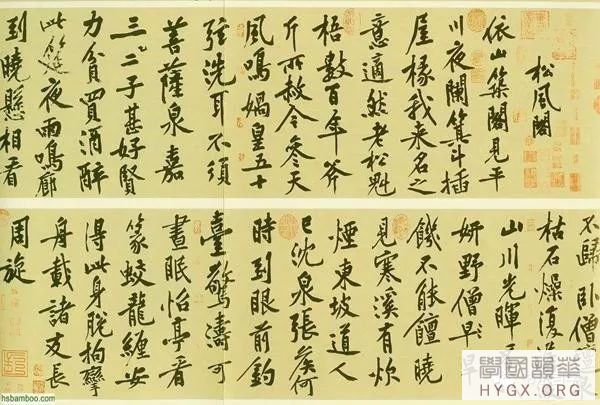 松風閣
依山築閣見平
川夜闌箕斗插
屋椽我來名之
意適然老松魁
梧數百年斧
斤所赦令參天
風鳴媧皇五十
弦洗耳不須
菩薩泉嘉
三二子甚好賢
力貧買酒醉
此筵夜雨鳴廊
到曉懸相看
不歸臥僧
枯石燥復
山川光暉
妍野僧旱
饑不能饘曉
見寒溪有炊
煙東坡道人
已沈泉張侯何
時到眼前釣
臺驚濤可
晝眠怡亭看
篆蛟龍纏安
得此身脫拘攣
舟載諸友長
周旋
hsbamboo.com
學國韻華
HYGX.ORG